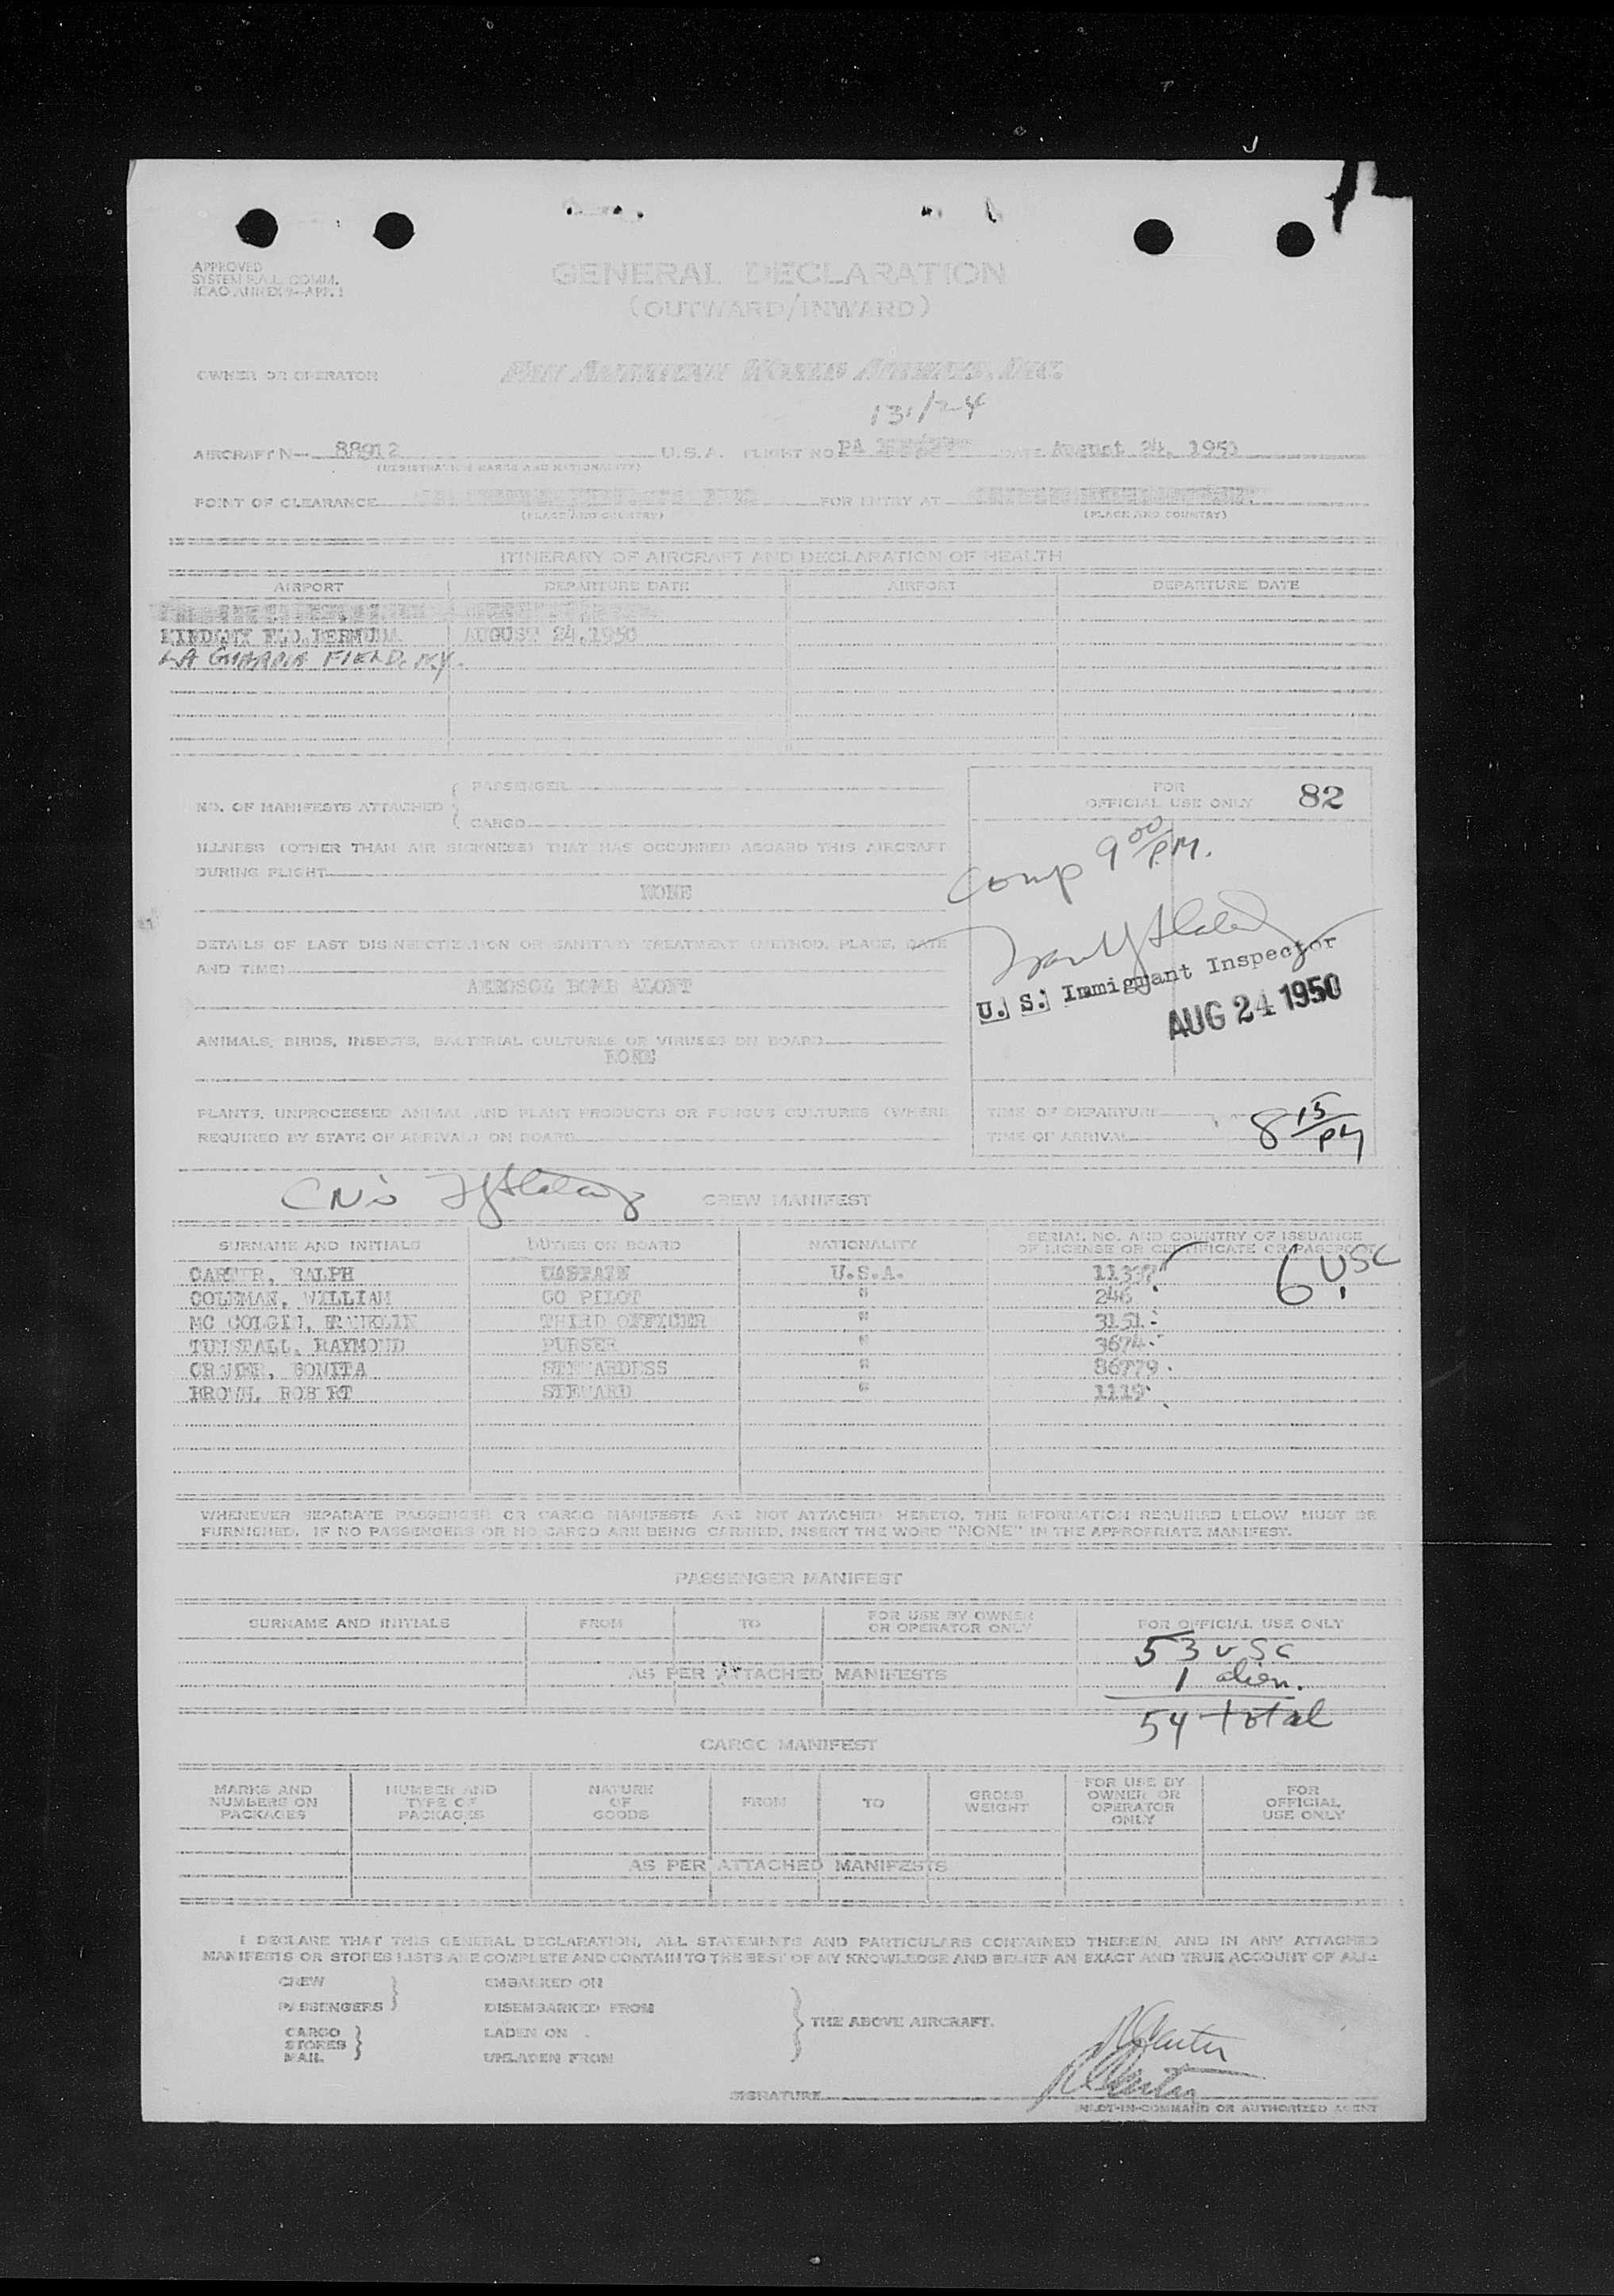 APPROVED
SYSTEM R.A.L. COMM.
ICAO ANNEX 9—APP. 1
GENERAL DECLARATION
(OUTWARD/INWARD)
OWNER OR OPERATOR PAN AMERICAN WORLD AIRWAYS, INC.
131/24
AIRCRAFT N— 88912 U.S.A. FLIGHT NO PA DATE August 24, 1950
(REGISTRATION MARKS AND NATIONALITY)
POINT OF CLEARANCE FOR ENTRY AT
(PLACE AND COUNTRY) (PLACE AND COUNTRY)
ITINERARY OF AIRCRAFT AND DECLARATION OF HEALTH
AIRPORT DEPARTURE DATE AIRPORT DEPARTURE DATE
KINDLEY FLD, BERMUDA AUGUST 24, 1950
LA GUARDIA FIELD. NY.
NO. OF MANIFESTS ATTACHED { PASSENGER
{ CARGO
FOR
OFFICIAL USE ONLY 82
Comp 9 00 PM.
ILLNESS (OTHER THAN AIR SICKNESS) THAT HAS OCCURRED ABOARD THIS AIRCRAFT
DURING FLIGHT
NONE
DETAILS OF LAST DISINSECTIZATION OR SANITARY TREATMENT (METHOD, PLACE, DATE
AND TIME)
AEROSOL BOMB ALOFT
U. S. Immigrant Inspector
AUG 24 1950
ANIMALS, BIRDS, INSECTS, BACTERIAL CULTURES OR VIRUSES ON BOARD
NONE
PLANTS, UNPROCESSED ANIMAL AND PLANT PRODUCTS OR FUNGUS CULTURES (WHERE
REQUIRED BY STATE OF ARRIVAL) ON BOARD
TIME OF DEPARTURE
TIME OF ARRIVAL 8 15 PM
CREW MANIFEST
SURNAME AND INITIALS DUTIES ON BOARD NATIONALITY SERIAL NO. AND COUNTRY OF ISSUANCE
OF LICENSE OR CERTIFICATE OR PASSPORT
CARTER, RALPH CAPTAIN U.S.A. 11397 6 USC
COLEMAN, WILLIAM CO PILOT " 246
MC COLGIN, FRANKLIN THIRD OFFICER " 3151
TUNSTALL, RAYMOND PURSER " 3674
CRAMER, BONITA STEWARDESS " 86779
BROWN, ROBERT STEWARD " 1119
WHENEVER SEPARATE PASSENGER OR CARGO MANIFESTS ARE NOT ATTACHED HERETO, THE INFORMATION REQUIRED BELOW MUST BE
FURNISHED. IF NO PASSENGERS OR NO CARGO ARE BEING CARRIED, INSERT THE WORD "NONE" IN THE APPROPRIATE MANIFEST.
PASSENGER MANIFEST
SURNAME AND INITIALS FROM TO FOR USE BY OWNER
OR OPERATOR ONLY FOR OFFICIAL USE ONLY
53 USC
AS PER ATTACHED MANIFESTS 1 alien.
54 total
CARGO MANIFEST
MARKS AND
NUMBERS ON
PACKAGES NUMBER AND
TYPE OF
PACKAGES NATURE
OF
GOODS FROM TO GROSS
WEIGHT FOR USE BY
OWNER OR
OPERATOR
ONLY FOR
OFFICIAL
USE ONLY
AS PER ATTACHED MANIFESTS
I DECLARE THAT THIS GENERAL DECLARATION, ALL STATEMENTS AND PARTICULARS CONTAINED THEREIN, AND IN ANY ATTACHED
MANIFESTS OR STORES LISTS ARE COMPLETE AND CONTAIN TO THE BEST OF MY KNOWLEDGE AND BELIEF AN EXACT AND TRUE ACCOUNT OF ALL:
CREW EMBARKED ON
PASSENGERS DISEMBARKED FROM
THE ABOVE AIRCRAFT.
CARGO LADEN ON
STORES
MAIL UNLADEN FROM
R Carter
R Carter
SIGNATURE
PILOT-IN-COMMAND OR AUTHORIZED AGENT